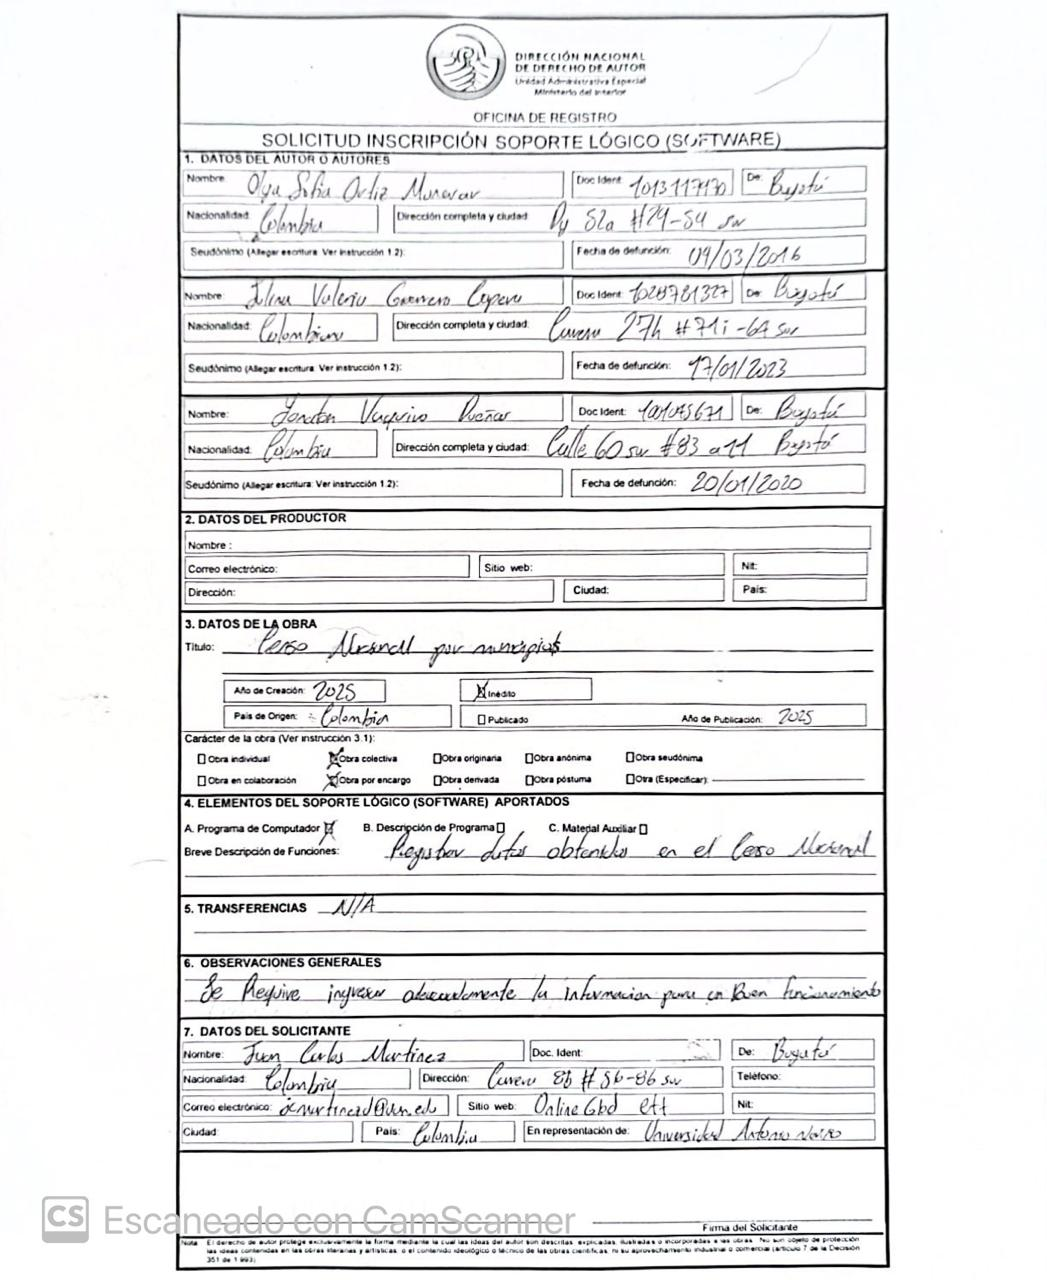 DIRECCIÓN NACIONAL
DE DERECHO DE AUTOR
Unidad Administrativa Especial
Ministerio del Interior
OFICINA DE REGISTRO
SOLICITUD INSCRIPCIÓN SOPORTE LÓGICO (SOFTWARE)
1. DATOS DEL AUTOR O AUTORES
Nombre: Olga Sofia Ortiz Doc Ident: De: Bogotá
Nacionalidad: Colombia Dirección completa y ciudad: Dg 52a #29-54 sur
Seudónimo (Allegar escritura. Ver instrucción 1.2): Fecha de defunción: 04/03/2016
Nombre: Valeria Guerrero Doc Ident: 1028781327 De: Bogotá
Nacionalidad: Colombiana Dirección completa y ciudad: Carrera 27h #71i-64 sur
Seudónimo (Allegar escritura: Ver instrucción 1.2): Fecha de defunción: 17/01/2023
Nombre: Doc Ident: De: Bogotá
Nacionalidad: Colombia Dirección completa y ciudad: Calle 60 sur #83 a11 Bogotá
Seudónimo (Allegar escritura: Ver instrucción 1.2): Fecha de defunción: 20/01/2020
2. DATOS DEL PRODUCTOR
Nombre :
Correo electrónico: Sitio web: Nit:
Dirección: Ciudad: País:
3. DATOS DE LA OBRA
Título: Censo Nacional por municipios
Año de Creación: 2025 Inédito
País de Origen: Colombia Publicado Año de Publicación: 2025
Carácter de la obra (Ver instrucción 3.1):
Obra individual Obra colectiva Obra originaria Obra anónima Obra seudónima
Obra en colaboración Obra por encargo Obra derivada Obra póstuma Otra (Especificar):
4. ELEMENTOS DEL SOPORTE LÓGICO (SOFTWARE) APORTADOS
A. Programa de Computador B. Descripción de Programa C. Material Auxiliar
Breve Descripción de Funciones: Registrar datos obtenidos en el Censo Nacional
5. TRANSFERENCIAS N/A
6. OBSERVACIONES GENERALES
Se Requiere ingresar adecuadamente la informacion para un Buen funcionamiento
7. DATOS DEL SOLICITANTE
Nombre: Juan Carlos Martinez Doc. Ident: De: Bogotá
Nacionalidad: Colombia Dirección: Carrera 8b # 86 sur Teléfono:
Correo electrónico: Sitio web: Nit:
Ciudad: País: Colombia En representación de: Universidad Antonio Nariño
Firma del Solicitante
Nota: El derecho de autor protege exclusivamente la forma mediante la cual las ideas del autor son descritas, explicadas, ilustradas o incorporadas a las obras. No son objeto de protección
las ideas contenidas en las obras literarias y artísticas, o el contenido ideológico o técnico de las obras científicas, ni su aprovechamiento industrial o comercial (artículo 7 de la Decisión
351 de 1.993)
CS Escaneado con CamScanner